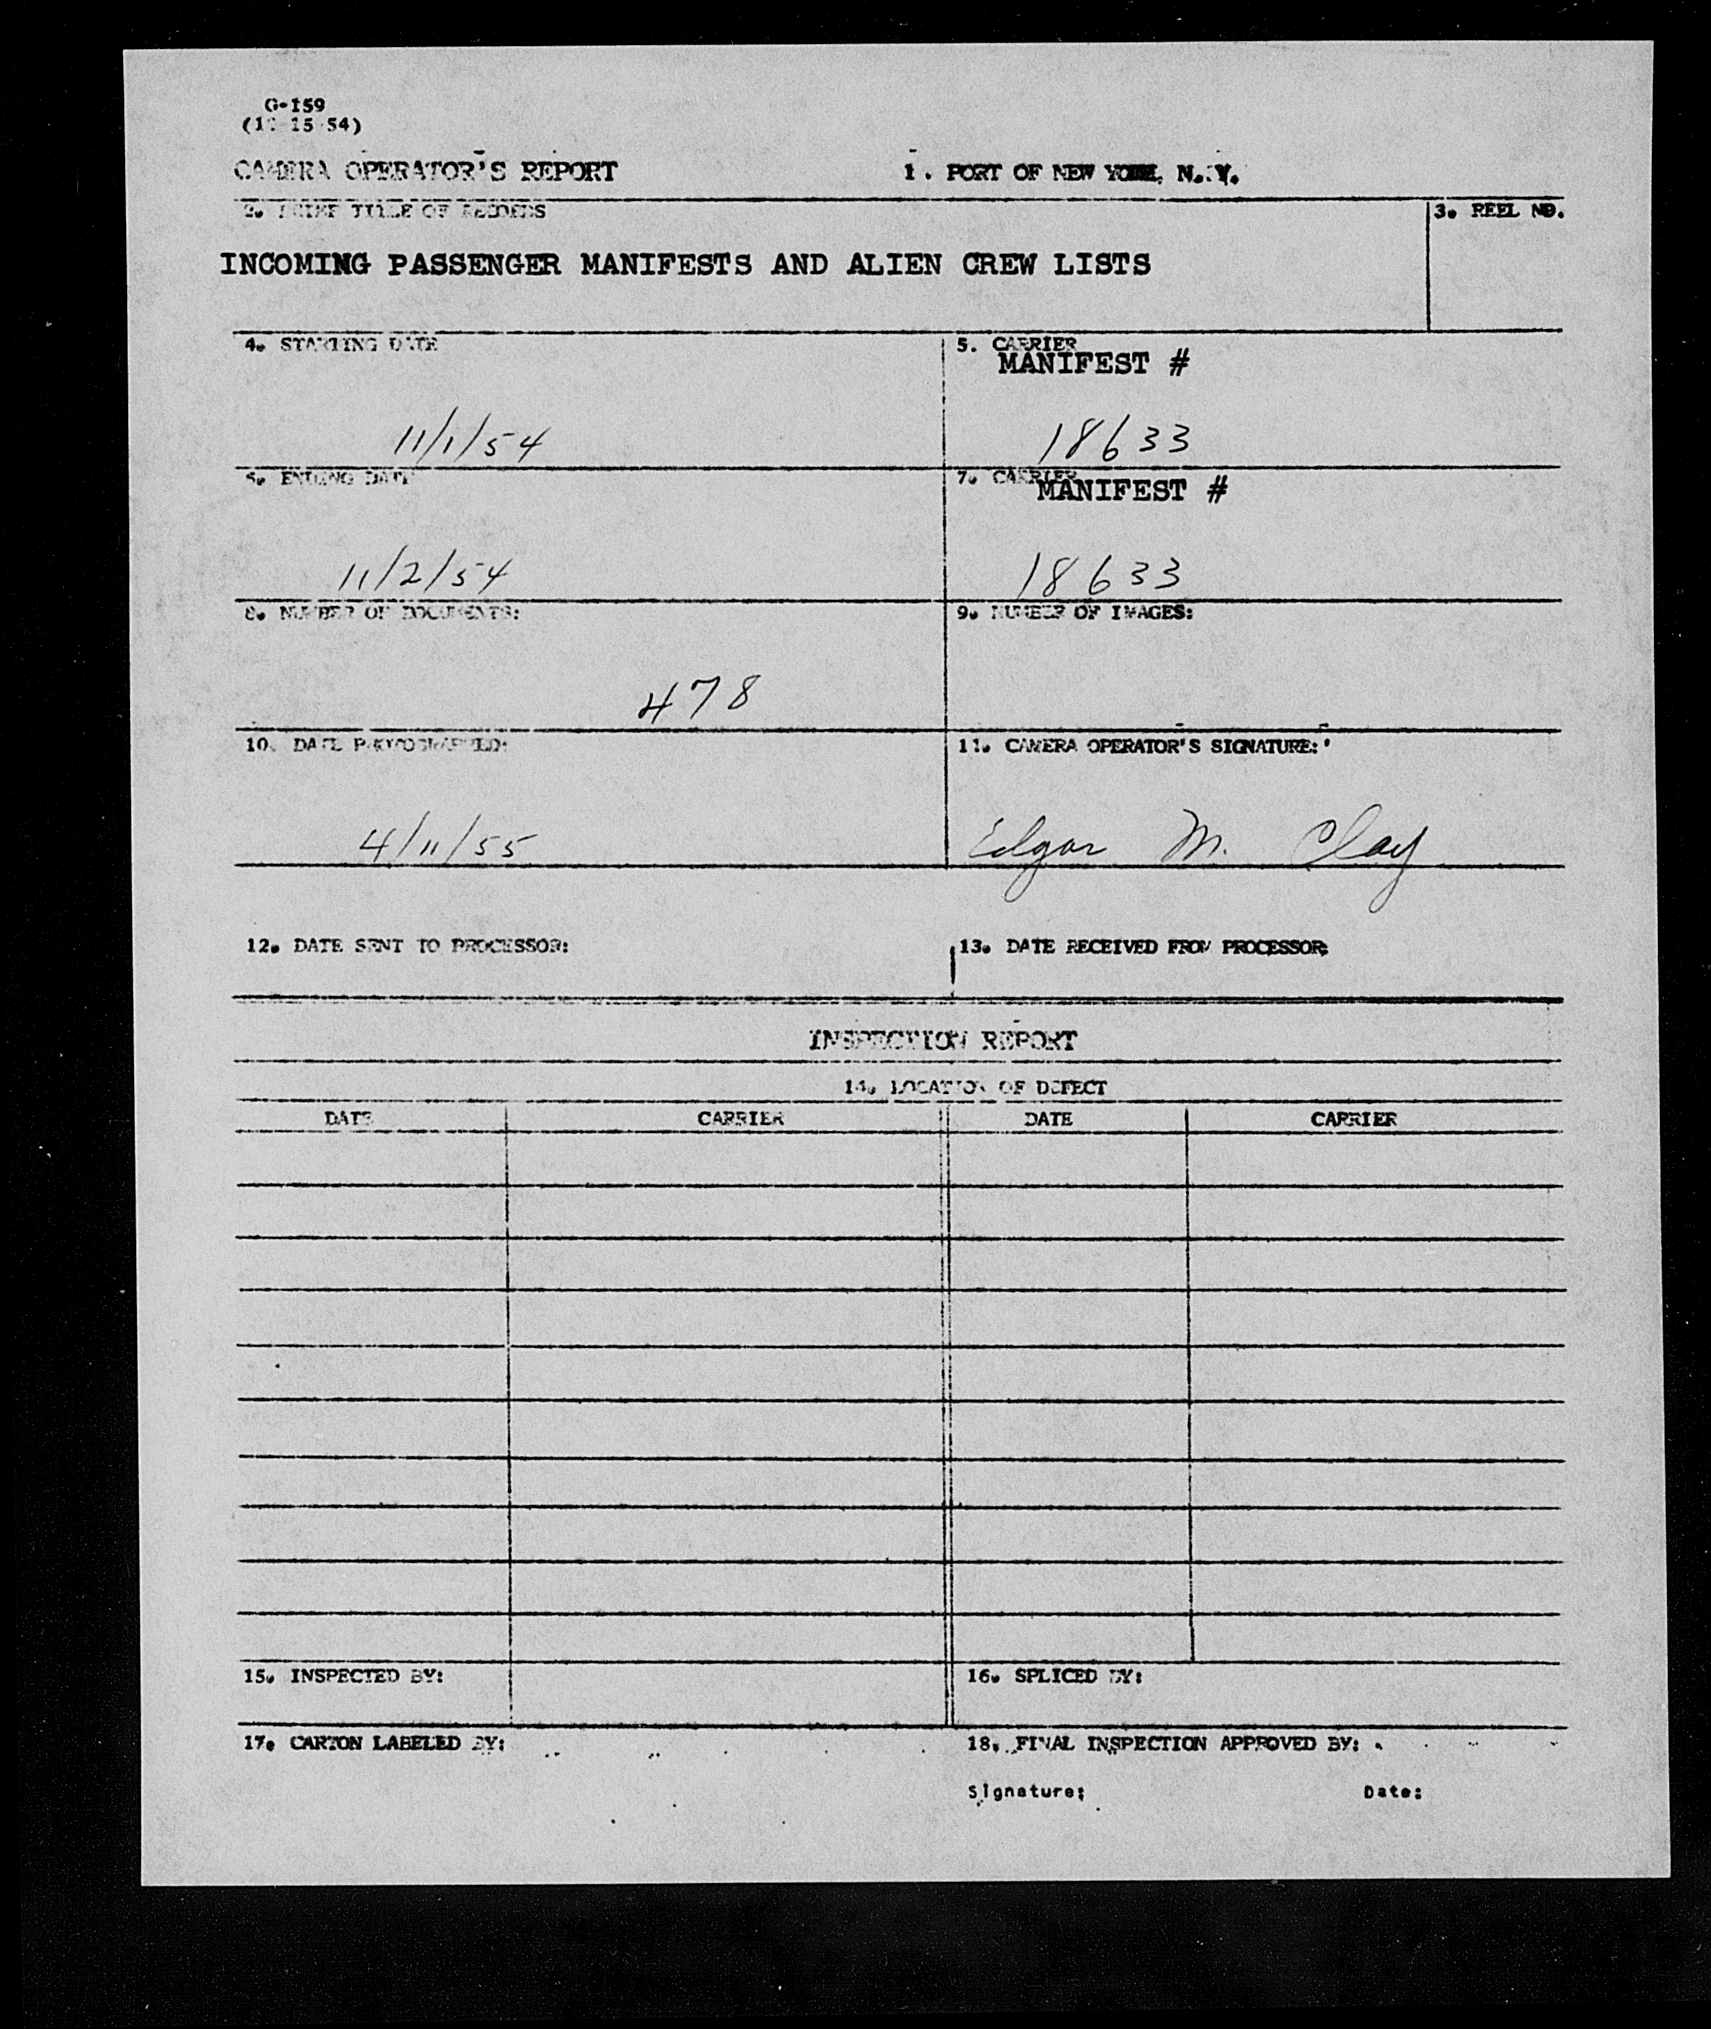 G-159
CAMERA OPERATOR'S REPORT
1. PORT OF NEW YORK, N. Y.
2. BRIEF TITLE OF RECORDS
3. REEL NO.
INCOMING PASSENGER MANIFESTS AND ALIEN CREW LISTS
4. STARTING DATE
5. CARRIER
MANIFEST #
11/1/54
18633
6. ENDING DATE
7. CARRIER
MANIFEST #
11/2/54
18633
8. NUMBER OF DOCUMENTS:
9. NUMBER OF IMAGES:
478
10. DATE PHOTOGRAPHED:
11. CAMERA OPERATOR'S SIGNATURE:
4/11/55
Edgar M. Clay
12. DATE SENT TO PROCESSOR:
13. DATE RECEIVED FROM PROCESSOR:
INSPECTION REPORT
14. LOCATION OF DEFECT
DATE CARRIER DATE CARRIER
15. INSPECTED BY:
16. SPLICED BY:
17. CARTON LABELED BY:
18. FINAL INSPECTION APPROVED BY:
Signature: Date: